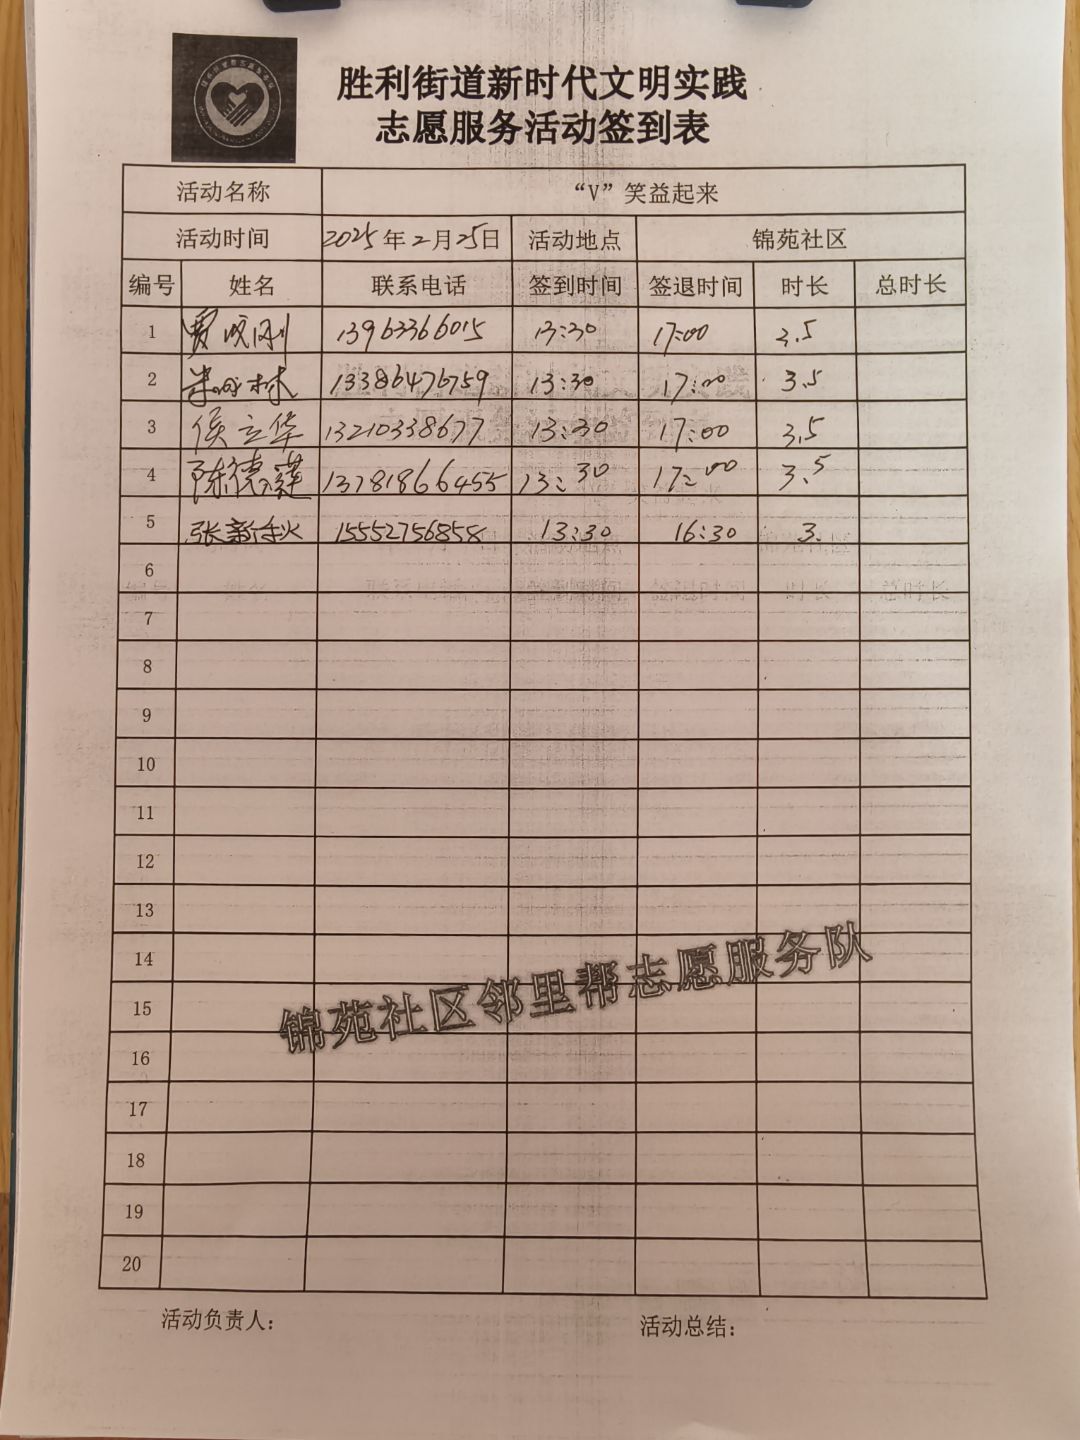 胜利街道新时代文明实践
志愿服务活动签到表
活动名称 “V”笑益起来
活动时间 2025年2月25日 活动地点 锦苑社区
编号 姓名 联系电话 签到时间 签退时间 时长 总时长
1 贾成刚 13963366015 13:30 17:00 3.5
2 林 13386476759 13:30 17:00 3.5
3 侯立华 13210338677 13:30 17:00 3.5
4 陈德莲 13781866455 13:30 17:00 3.5
5 张新秋 15552756858 13:30 16:30 3.
6
7
8
9
10
11
12
13
14
锦苑社区邻里帮志愿服务队
15
16
17
18
19
20
活动负责人： 活动总结：